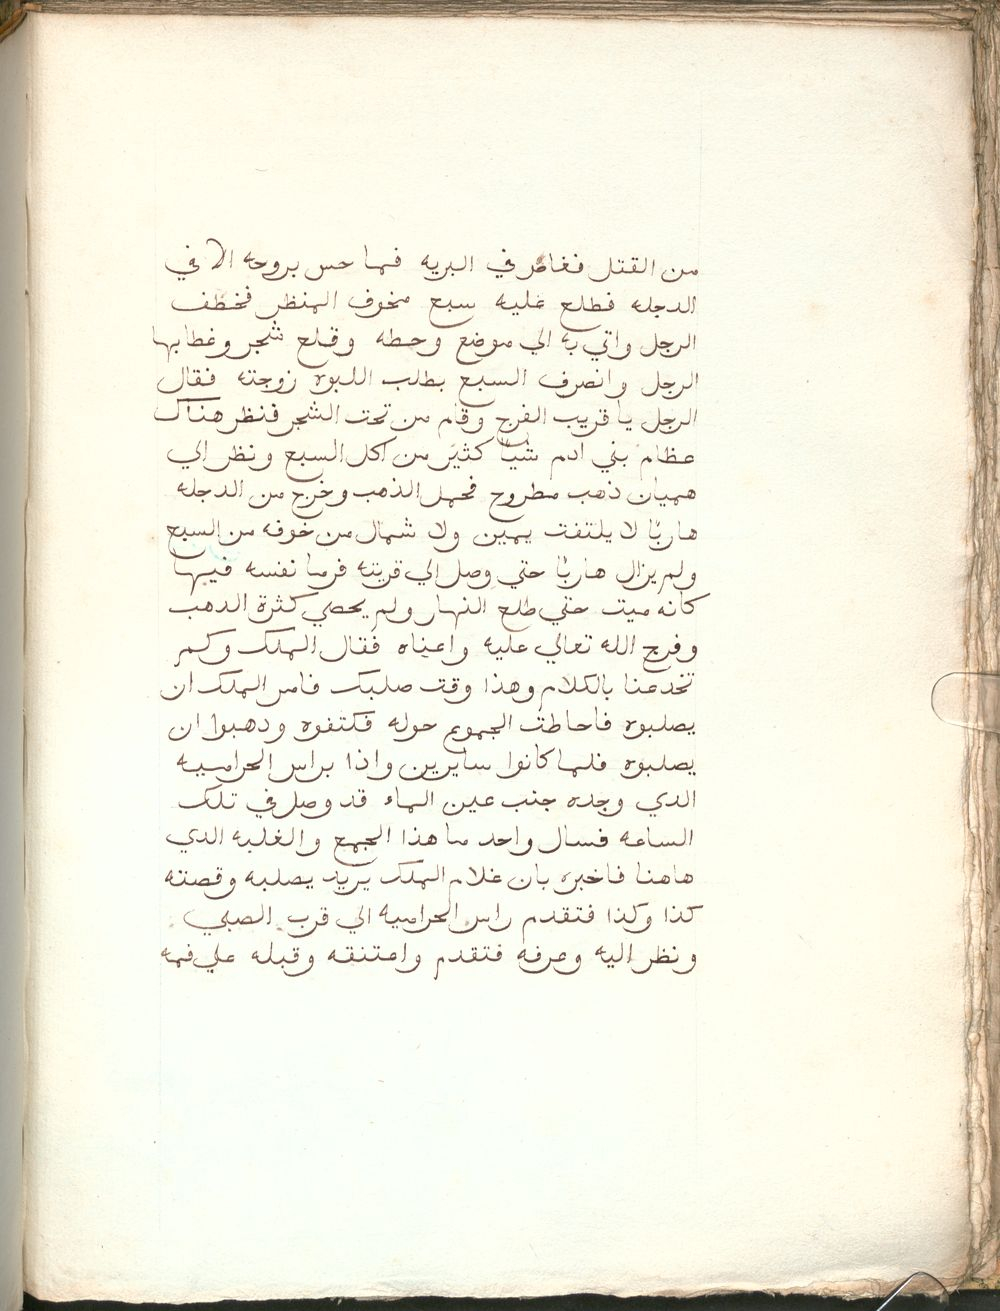 من القتل فغامر في البريه فما حس بروحه الا في
الدجله فطلع عليه سبع مخوف المنظر فخطف
الرجل واتي به الي موضع وحطه وقلع شجر وغطا بها
الرجل وانصرف السبع بطلب اللبوه زوجته فقال
الرجل يا قريب الفرج وقام من تحت الشجر فنظر هناك
عظام بني ادم شيأ كثير من اكل السبع ونظر الي
هميان ذهب مطروح فحمل الذهب وخرج من الدجله
هاربًا لا يلتفت يمين ولا شمال من خوفه من السبع
ولم يزال هاربًا حتي وصل الي قريته فرما نفسه فيها
كانه ميت حتي طلع النهار ولم يحصي كثرة الدهب
وفرج الله تعالي عليه واغناه فقال الملك وكم
تخدعنا بالكلام وهذا وقت صلبك فامر الملك ان
يصلبوه فاحاطت الجموع حوله فكتفوه ودهبوا ان
يصلبوه فلما كانوا سايرين واذا براس الحراميه
الدي وجده جنب عين الماء قد وصل في تلك
الساعه فسال واحد ما هذا الجمع والغلبه الدي
هاهنا فاخبره بان غلام الملك يريد يصلبه وقصته
كذا وكذا فتقدم راس الحراميه الي قرب الصبي
ونظر اليه وعرفه فتقدم واعتنقه وقبله علي فمه